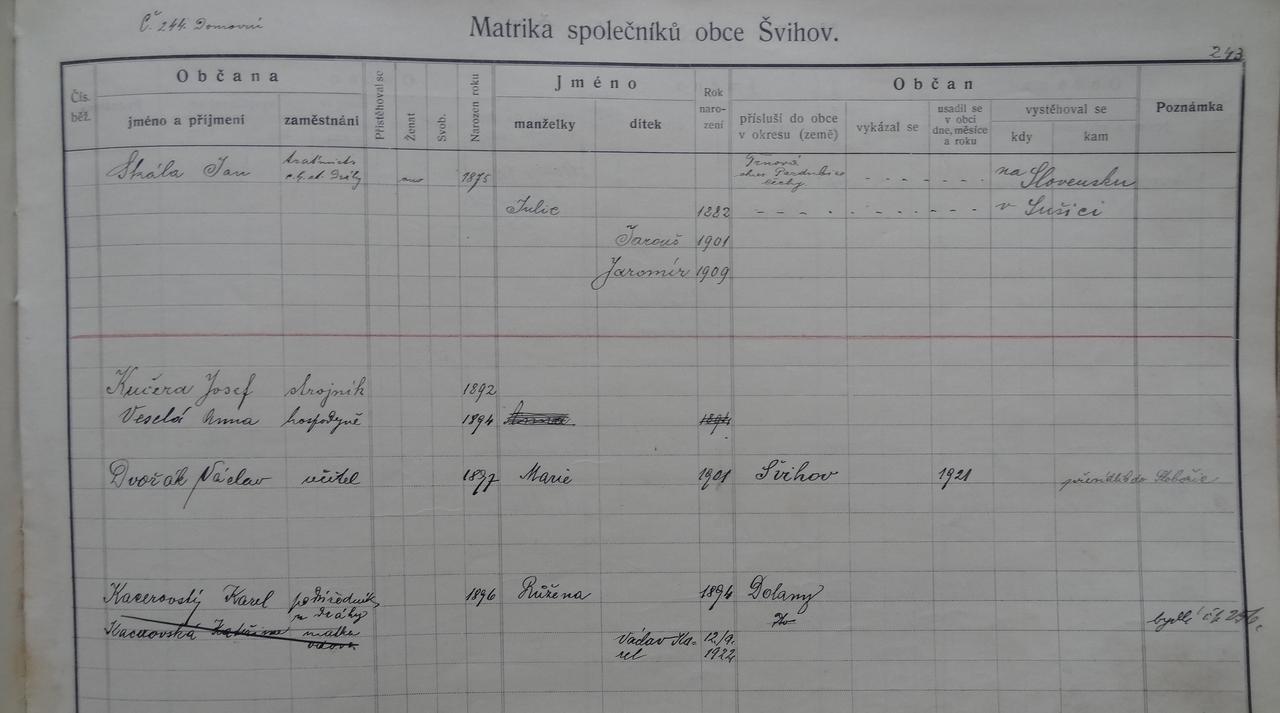 Č. 244. Domovní
Matrika společníků obce Švihov.
243
Čís. běž.
Občana
jméno a příjmení
zaměstnání
Přistěhoval se
Ženat
Svob.
Narozen roku
Jméno
manželky
dítek
Rok naro- zení
Občan
přísluší do obce v okresu (země)
vykázal se
usadil se v obci dne, měsíce a roku
vystěhoval se
kdy
kam
Poznámka
Skála Jan
ano 1875
Čechy
na Slovensku
Julie 1882
v Sušici
Jarouš 1901
Jaromír 1909
Kučera Josef strojník 1892
Veselá Anna hospodyně 1894 Anna 1894
Dvořák Václav učitel 1897 Marie 1901 Švihov 1921 přesídlil do
Kacerovský Karel podúředník 1896 Růžena 1894 Dolany
dráhy
Kacerovská Kateřina matka vdova
Václav Ka- rel 12/9. 1922
bydlí čp. 256.